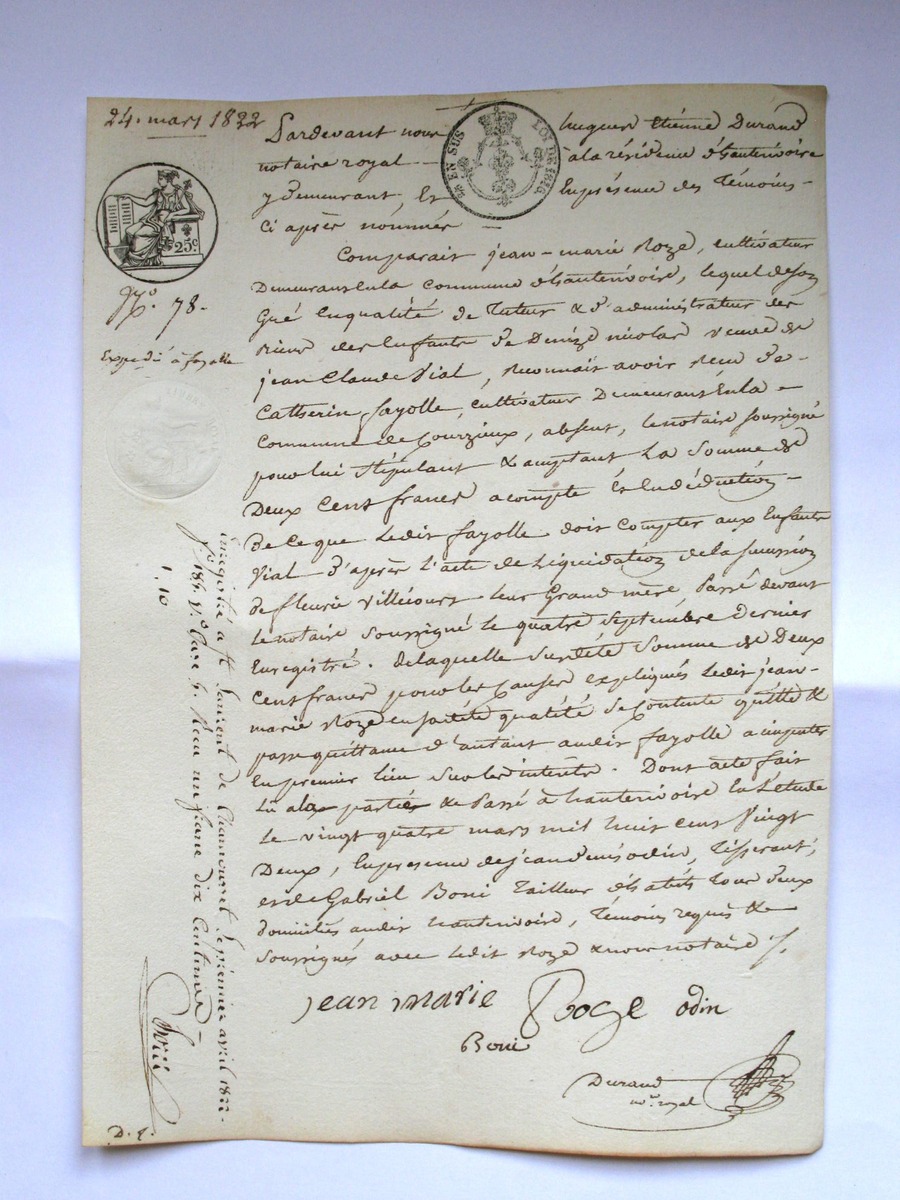 24. mars 1822
Pardevant nous hugues étiénne Durand
notaire royal — à la résidence d'hauterivoire
y demeurant, Et En présence des Témoins -
Ci après nommés —
EN SUS LOI DE 1816
25c.
No. 78.
Expedié à fayolle
Comparait jean-marie Roze, cultivateur
Demeurant En la commune d'hauterivoire, lequel
En qualité de Tuteur & d'administrateur des
biens des Enfants de Denize nicolas veuve de
jean Claude Vial, Reconnait avoir Recu de
Catherin fayolle, cultivateur Demeurant En la -
Commune de Courzieux, absent, le notaire soussigné
pour lui stipulant & acceptant La Somme de
Deux Cent francs acompte & En déduction -
De Ce que Ledit fayolle doit Compter aux Enfants
Vial d'après l'acte de Liquidation de la succession
de fleurie Villecourt leur Grand mère, Passé devant
Le notaire soussigné le quatre septembre dernier
Enregistré. de laquelle susdite Somme de Deux
Cent francs pour les Causes expliqués Ledit jean-
marie Roze en sadite qualité se Contente quitte &
passe quittance d'autant audit fayolle a imputer
En premier lieu sur les intérêts. Dont acte fait
Lu aux parties & Passé à hauterivoire En L'étude
Le vingt quatre mars mil huit cent Vingt
Deux, En présence de jean denis odin, Tisserant,
et de Gabriel Boni Tailleur d'habits Tous deux
domiciliés audit hauterivoire, Témoins requis &
Soussignés avec Ledit Roze & nous notaire
jean marie Roze odin
Boni
Durand
no.re royal
Enregistré à St Laurent de Chamousset le premier avril 1822.
fo. 185. Vo. Case 5. Recu un franc dix Centimes
1.10
D. q.